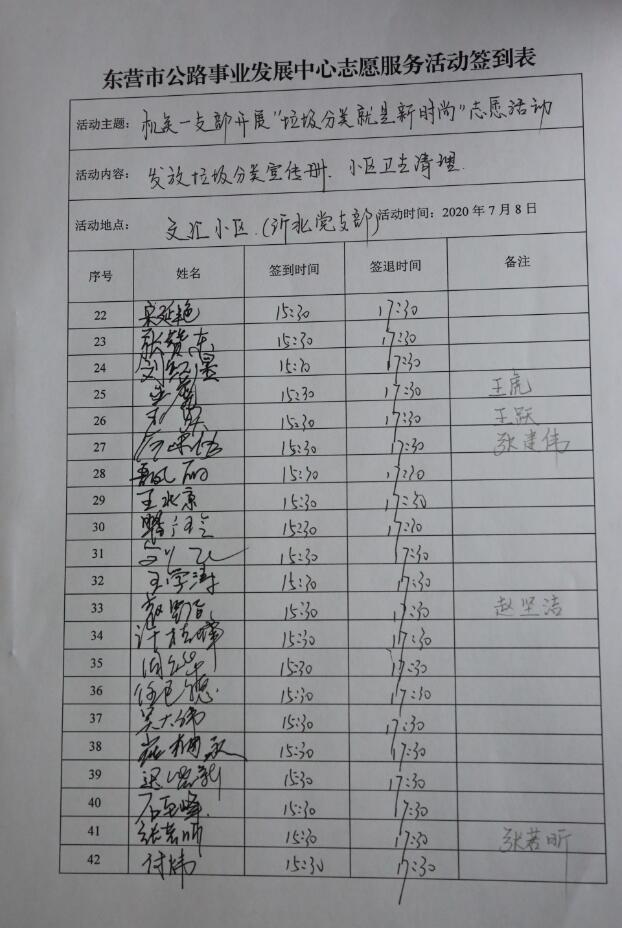 东营市公路事业发展中心志愿服务活动签到表
活动主题: 机关一支部开展“垃圾分类就是新时尚”志愿活动
活动内容: 发放垃圾分类宣传册. 小区卫生清理.
活动地点: 文汇小区.(沂北党支部) 活动时间:2020年7月8日
序号 姓名 签到时间 签退时间 备注
22 宋延艳 15:30 17:30
23 15:30 17:30
24 15:30 17:30
25 王虎 15:30 17:30 王虎
26 王跃 15:30 17:30 王跃
27 15:30 17:30 张建伟
28 15:30 17:30
29 王北京 15:30 17:30
30 15:30 17:30
31 15:30 17:30
32 王学涛 15:30 17:30
33 15:30 17:30 赵坚洁
34 15:30 17:30
35 15:30 17:30
36 15:30 17:30
37 吴大伟 15:30 17:30
38 15:30 17:30
39 15:30 17:30
40 15:30 17:30
41 张若昕 15:30 17:30 张若昕
42 付炜 15:30 17:30